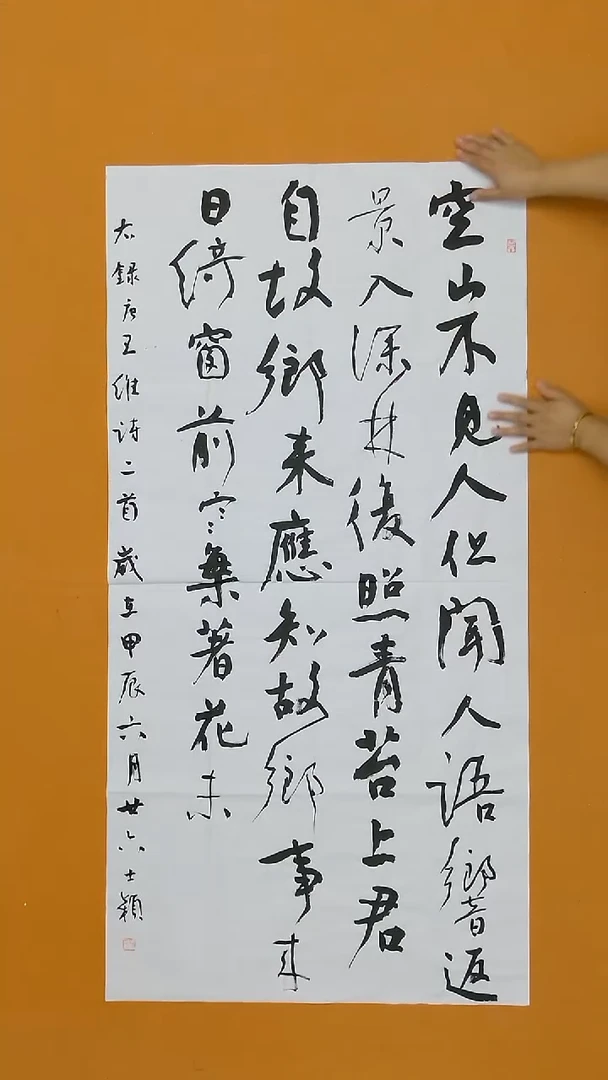 空山不見人但聞人語響返
景入深林復照青苔上君
自故鄉來應知故鄉事來
日綺窗前寒梅著花未
右錄唐王維詩二首歲在甲辰六月廿六士穎